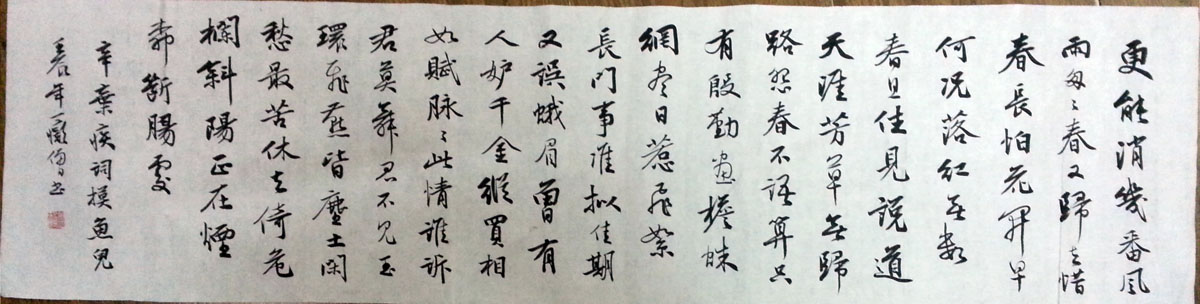 更能消幾番風
雨匆〻春又歸去惜
春長怕花開早
何況落紅無數
春且住見說道
天涯芳草無歸
路怨春不語算只
有殷勤畫檐蛛
網盡日惹飛絮
長門事準擬佳期
又誤蛾眉曾有
人妒千金縱買相
如賦脉〻此情誰訴
君莫舞君不見玉
環飛燕皆塵土閑
愁最苦休去倚危
欄斜陽正在煙
柳斷腸處
辛棄疾詞摸魚兒
年一書